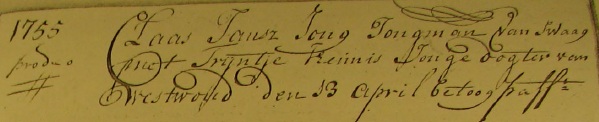 1755 Claas Jansz Jong Jongman van Swaag
prodeo met Tryntje Reinis Jonge dogter van
Westwoud den 13 April betoog pass: